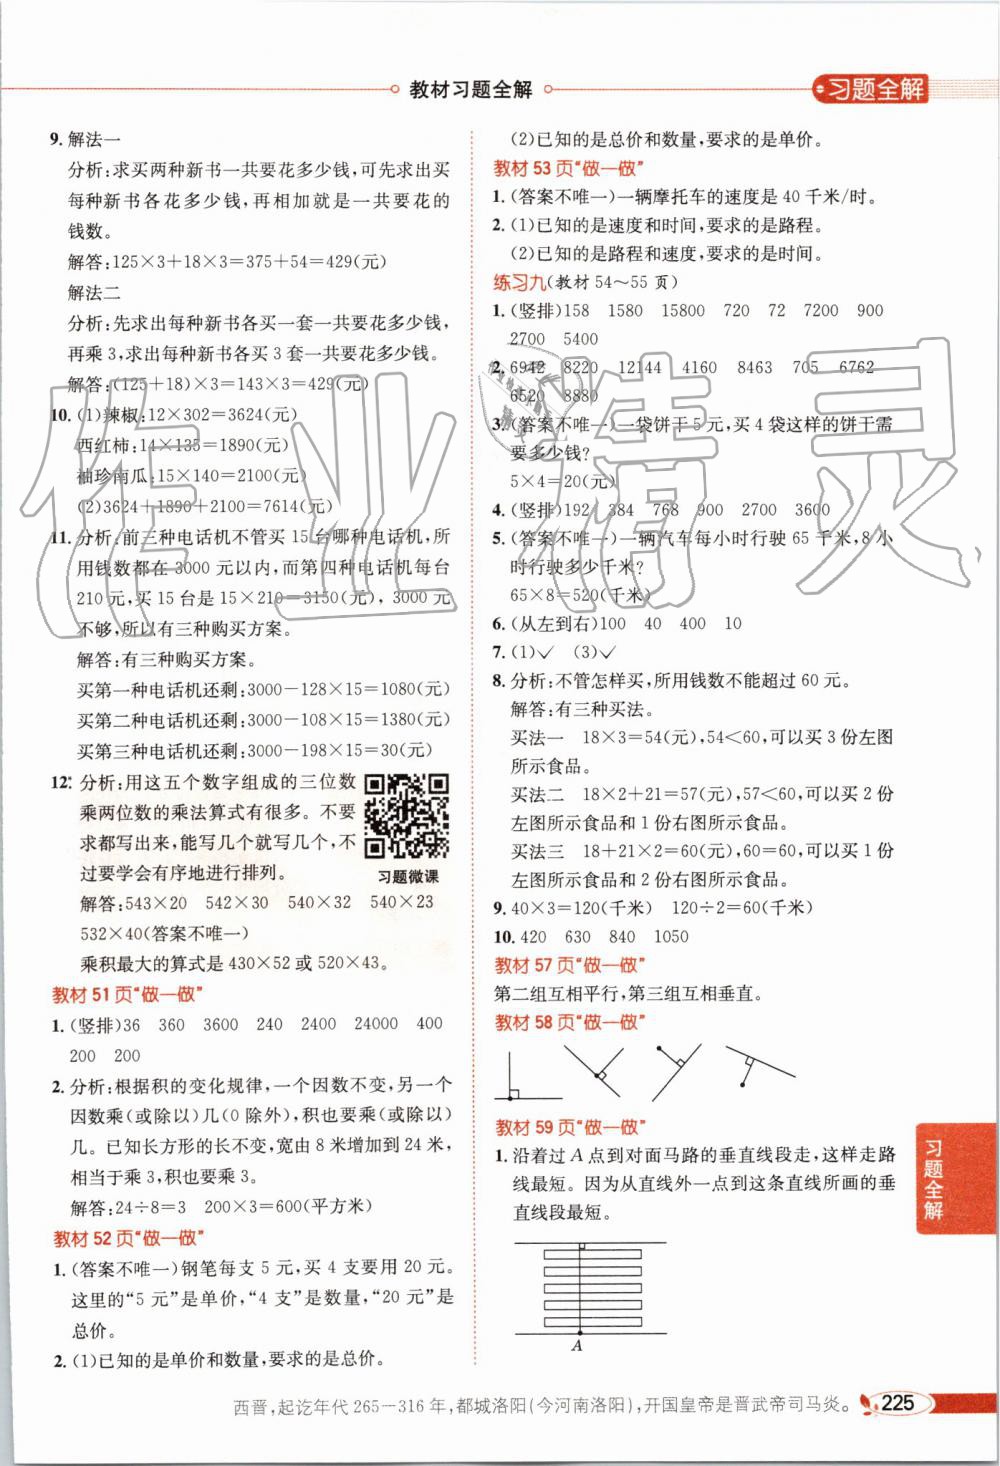 教材习题全解
习题全解
9. 解法一
分析:求买两种新书一共要花多少钱,可先求出买
每种新书各花多少钱,再相加就是一共要花的
钱数。
解答:125×3+18×3=375+54=429(元)
解法二
分析:先求出每种新书各买一套一共要花多少钱,
再乘 3,求出每种新书各买 3套一共要花多少钱。
解答:(125+18)×3=143×3=429(元)
10. (1)辣椒:12×302=3624(元)
西红柿:14×135=1890(元)
袖珍南瓜:15×140=2100(元)
(2)3624+1890+2100=7614(元)
11. 分析:前三种电话机不管买 15 台哪种电话机,所
用钱数都在 3000 元以内,而第四种电话机每台
210 元,买 15 台是 15×210=3150(元), 3000 元
不够,所以有三种购买方案。
解答:有三种购买方案。
买第一种电话机还剩:3000-128×15=1080(元)
买第二种电话机还剩:3000-108×15=1380(元)
买第三种电话机还剩:3000-198×15=30(元)
12* 分析:用这五个数字组成的三位数
乘两位数的乘法算式有很多。不要
求都写出来,能写几个就写几个,不
过要学会有序地进行排列。
习题微课
解答:543×20 542×30 540×32 540×23
532×40(答案不唯一)
乘积最大的算式是 430×52 或 520×43。
教材 51 页“做一做”
1. (竖排)36 360 3600 240 2400 24000 400
200 200
2. 分析:根据积的变化规律,一个因数不变,另一个
因数乘(或除以)几(0 除外),积也要乘(或除以)
几。已知长方形的长不变,宽由 8 米增加到 24 米,
相当于乘 3,积也要乘 3。
解答:24÷8=3 200×3=600(平方米)
教材 52 页“做一做”
1. (答案不唯一)钢笔每支 5 元,买 4 支要用 20 元。
这里的“5 元”是单价,“4 支”是数量,“20 元”是
总价。
2. (1)已知的是单价和数量,要求的是总价。
(2)已知的是总价和数量,要求的是单价。
教材 53 页“做一做”
1. (答案不唯一)一辆摩托车的速度是 40 千米/时。
2. (1)已知的是速度和时间,要求的是路程。
(2)已知的是路程和速度,要求的是时间。
练习九(教材 54～55 页)
1. (竖排)158 1580 15800 720 72 7200 900
2700 5400
2. 6942 8220 12144 4160 8463 705 6762
6520 8880
3. (答案不唯一)一袋饼干 5 元,买 4 袋这样的饼干需
要多少钱?
5×4=20(元)
4. (竖排)192 384 768 900 2700 3600
5. (答案不唯一)一辆汽车每小时行驶 65 千米,8 小
时行驶多少千米?
65×8=520(千米)
6. (从左到右)100 40 400 10
7. (1)✓ (3)✓
8. 分析:不管怎样买,所用钱数不能超过 60 元。
解答:有三种买法。
买法一 18×3=54(元),54<60,可以买 3 份左图
所示食品。
买法二 18×2+21=57(元),57<60,可以买 2 份
左图所示食品和 1 份右图所示食品。
买法三 18+21×2=60(元),60=60,可以买 1 份
左图所示食品和 2 份右图所示食品。
9. 40×3=120(千米) 120÷2=60(千米)
10. 420 630 840 1050
教材 57 页“做一做”
第二组互相平行,第三组互相垂直。
教材 58 页“做一做”
教材 59 页“做一做”
1. 沿着过 A 点到对面马路的垂直线段走,这样走路
线最短。因为从直线外一点到这条直线所画的垂
直线段最短。
A
习题全解
西晋,起讫年代 265—316 年,都城洛阳(今河南洛阳),开国皇帝是晋武帝司马炎。
225
作业精灵